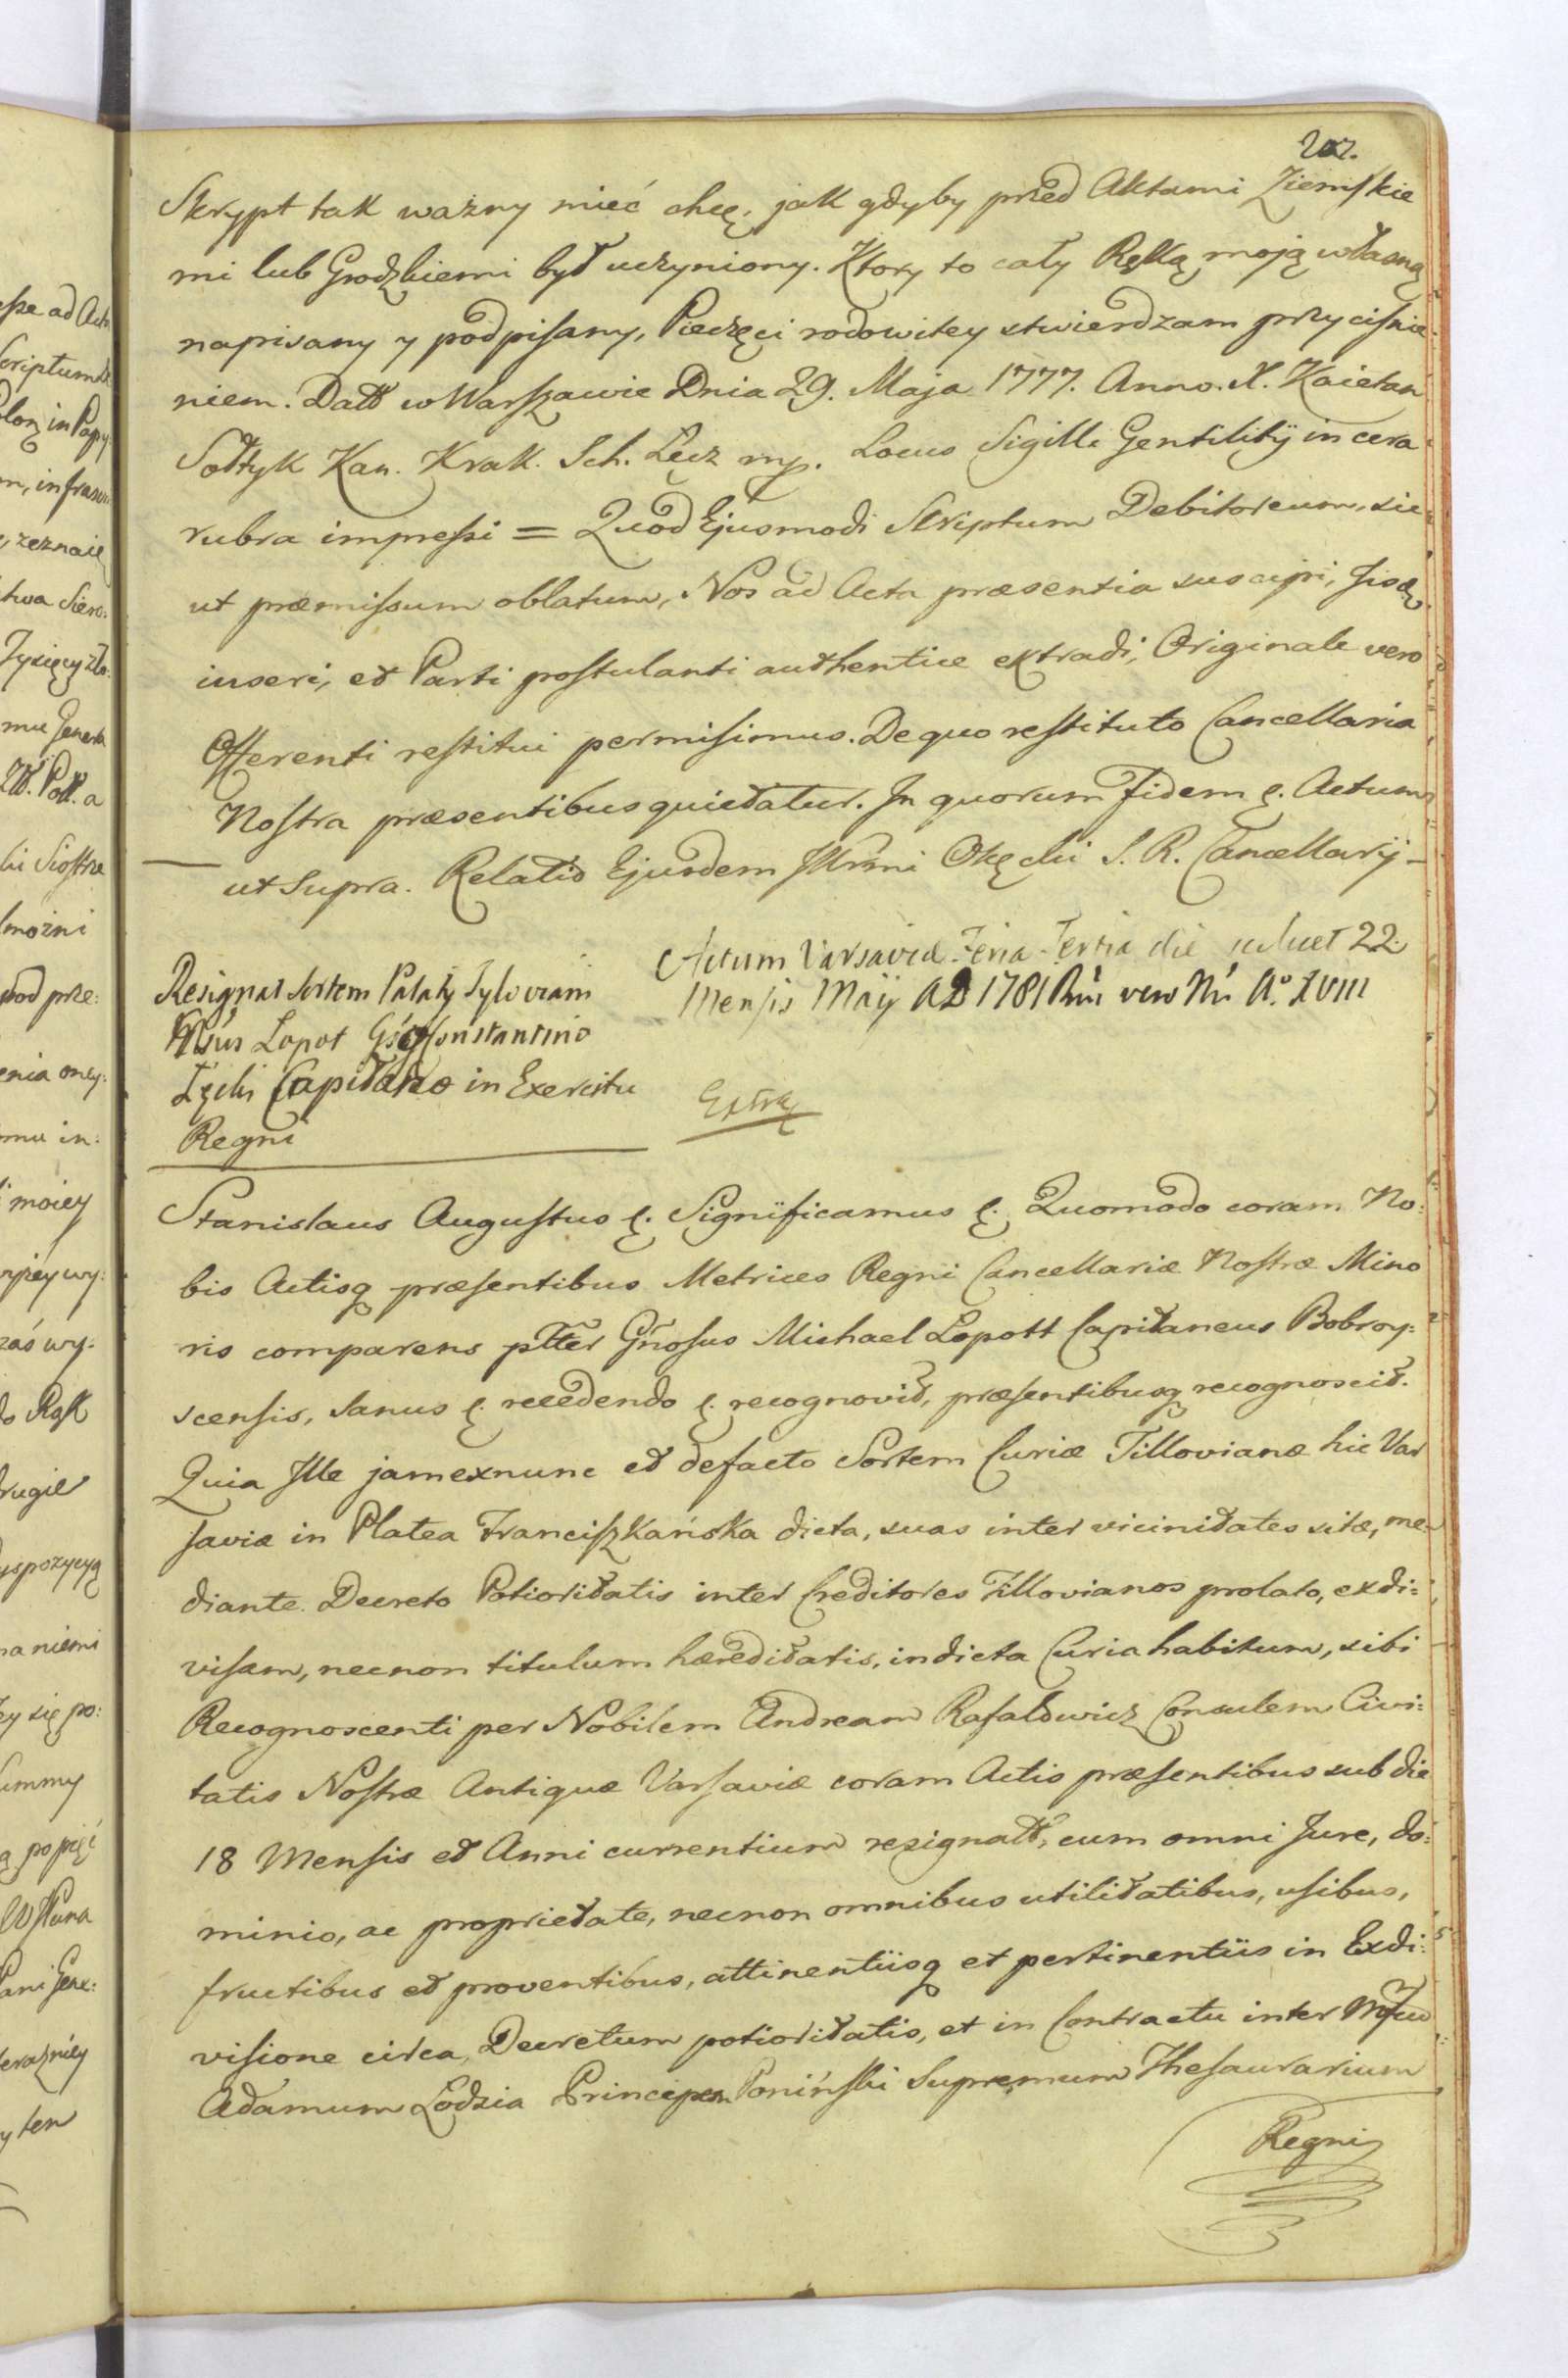 202.
Skrypt tak ważny mieć chcę, jak gdyby przed Aktami Ziemskie
mi lub Grodzkiemi był uczyniony. Ktory to cały Ręką moją własną
napisany y podpisany, Pieczęci rodowitey stwierdzam przycisnie
niem. Datt w Warszawie Dnia 29. Maja 1777. Anno. X. Kaietan
Sołtyk Kan. Krak. Sch. Łęcz mp. Locus Sigilli Gentilitÿ in cera
rubra impressi = Quod Ejusmodi Skriptum Debitoreum, sic
ut præmissum oblatum, Nos ad Acta præsentia suscipi, Jisq
inseri, et Parti postulanti authentice extradi, Originale vero
Offerenti restitui permisimus. De quo restituto Cancellaria
Nostra præsentibus quietatur. In quorum Fidem &. Actum
ut supra. Relatio Ejusdem Illrmi Okęcki S. R. Cancellarij
Resignat Sortem Palatÿ Tylovian
Lopot Constantino
Łęcki Capitaneo in Exercitu
Regni
Actum Varsaviæ Feria Tertia die scilicet 22.
Mensis Maÿ AD 1781 Rni vero Nri A° XVIII
Extra
Stanislaus Augustus &. Significamus &. Quomodo coram No:
bis Actisq præsentibus Metrices Regni Cancellariæ Nostræ Mino
ris comparens pltter Gnosus Michael Lopott Capitaneus Bobroy:
scensis, sanus &. recedendo &. recognovit, præsentibusq recognoscit.
Quia Ille jam exnunc et defacto Sortem Curiæ Tillovianæ hic Var
saviæ in Platea Franciszkańska dicta, suas inter vicinitates sitæ, me
diante Decreto Potioritatis inter Creditores Tillovianos prolato, exdi:
visam, necnon titulum hæreditatis, in dicta Curia habitum, sibi
Recognoscenti per Nobilem Andream Rafalowicz Consulem Civi:
tatis Nostræ Antiquæ Varsaviæ coram Actis præsentibus sub die
18 Mensis et Anni currentium resignatt, cum omni Jure, do:
minio, ac proprietate, necnon omnibus utilitatibus, usibus,
fructibus et proventibus, attinentiisq et pertinentiis in Exdi:
visione circa Decretum potioritatis, et in Contractu inter
Adamum Łodzia Principem Poniński Supremum Thesaurarium
Regni